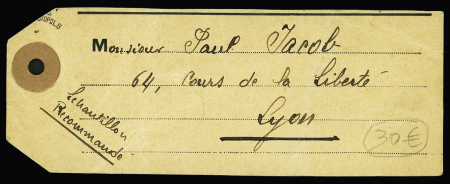 Monsieur Paul Jacob
64, Cours de la Liberté
Lyon
Echantillon
Recommandé
30€